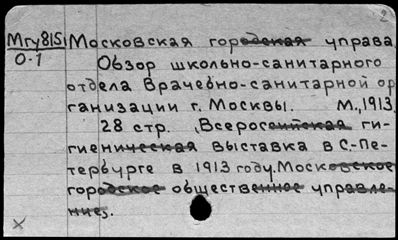 2
Мгу815 Московская городская управа.
0.1 Обзор школьно-санитарного
отдела Врачебно-санитарной ор
ганизации г. Москвы. М., 1913.
28 стр. /Всероссийская ги-
гиеническая выставка в С.-Пе-
тербурге в 1913 году. Московское
городское общественное управле-
ние/.